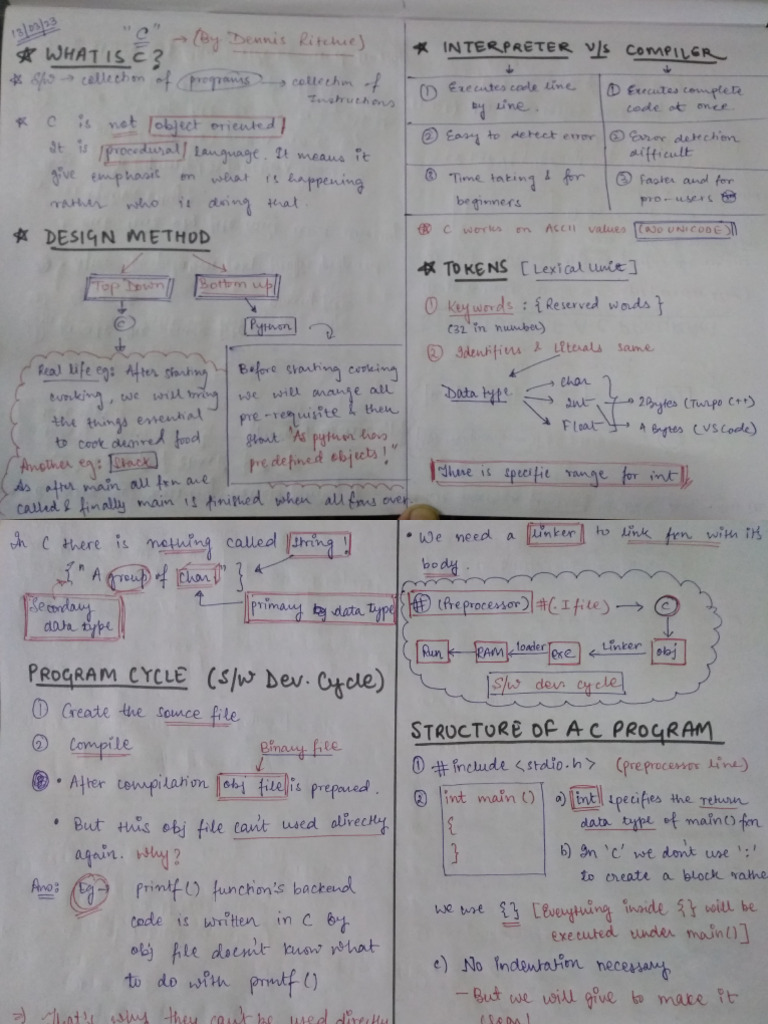 13/03/23
"C"
★ WHAT IS C? → (By Dennis Ritchie)
★ S/W → collection of programs → collection of
Instructions
★ C is not object oriented
It is procedural language. It means it
give emphasis on what is happening
rather who is doing that.
★ DESIGN METHOD
Top Down Bottom up
C Python
Real life eg: After starting
cooking, we will bring
the things essential
to cook desired food
Another eg: Stack
As after main all fxn are
called & finally main is finished when all fxns over.
Before starting cooking
we will arrange all
pre-requisite & then
start "As python has
predefined objects!"
★ INTERPRETER V/S COMPILER
① Executes code line
by line.
① Executes complete
code at once.
② Easy to detect error
② Error detection
difficult
③ Time taking & for
beginners
③ Faster and for
pro-users
C works on ASCII values (NO UNICODE)
★ TOKENS [Lexical Unit]
① Keywords : {Reserved words}
(32 in number)
② Identifiers & Literals same
Data type
char
Int → 2 Bytes (Turpo C++)
Float → 4 Bytes (VS Code)
There is specific range for int
In C there is nothing called string!
{" A group of char " }
Secondary
data type
primary data type
PROGRAM CYCLE (S/W Dev. Cycle)
① Create the source file
② Compile
Binary file
• After compilation obj file is prepared.
• But this obj file can't used directly
again. why?
Ans: Eg → printf() function's backend
code is written in C by
obj file doesn't know what
to do with printf()
⇒ That's why they can't be used directly
• We need a linker to link fxn with its
body.
# (Preprocessor) #(.I file) → C
Run ← RAM ← loader exe ← Linker obj
S/W dev cycle
STRUCTURE OF A C PROGRAM
① #include <stdio.h> (preprocessor line)
② int main ()
{
}
a) int specifies the return
data type of main() fxn
b) In 'C' we don't use ':'
to create a block rathe
we use {} [Everything inside {} will be
executed under main()]
c) No indentation necessary
- But we will give to make it